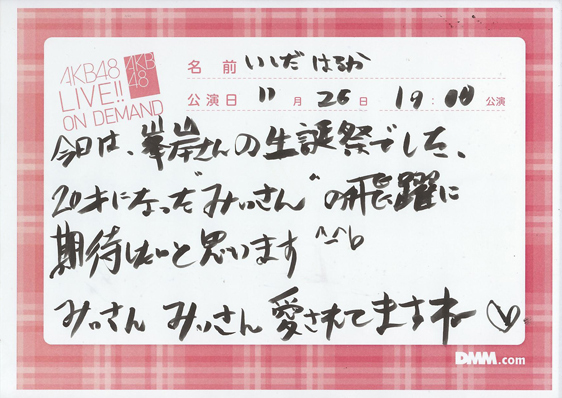 AKB48
LIVE!!
ON DEMAND
AKB
48
名前 いしだ はるか
公演日 11月26日 19:00 公演
今日は、峯岸さんの生誕祭でした、
20才になった"みぃさん"の飛躍に
期待したいと思います^-^b
みぃさん みぃさん 愛されてますね♡
DMM.com